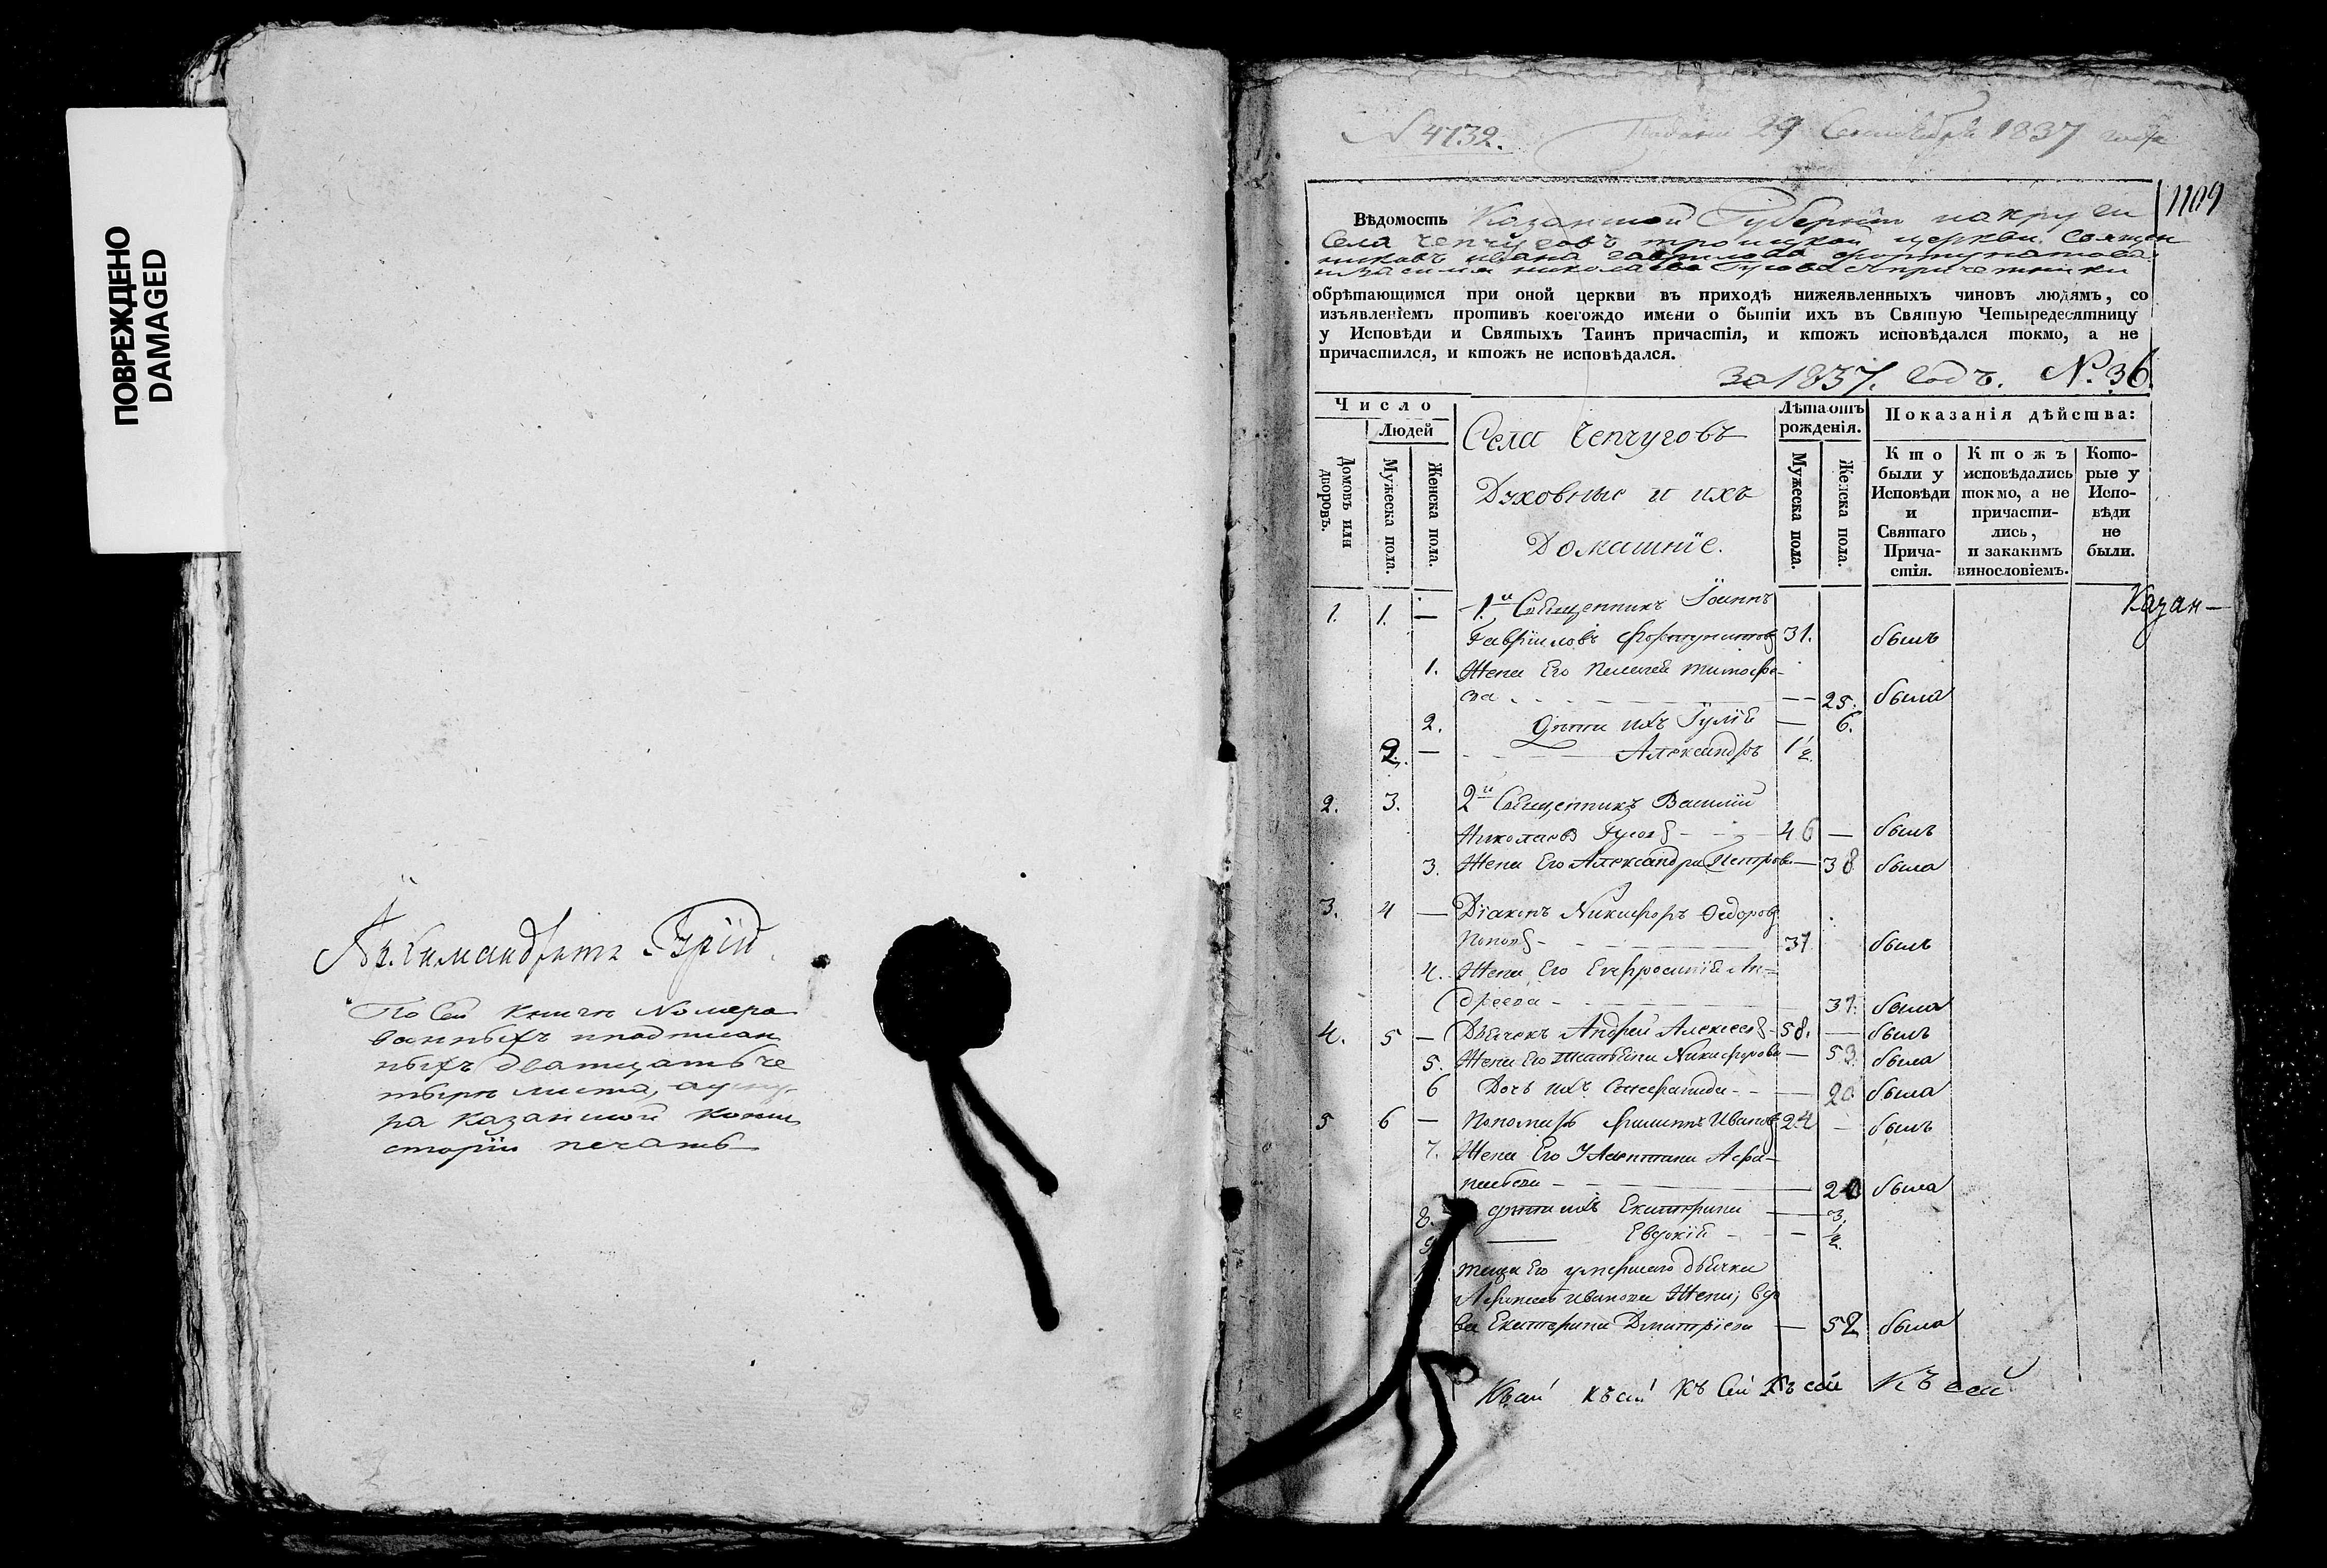 ПОВРЕЖДЕНО
DAMAGED
Архимандритъ Гурій.
По сей книгѣ номеро
ванныхъ
ныхъ дватцать че
тыри листа,
ра Казанской конси
сторіи печать
N 4732. Подана 29 Сентября 1837 года
1109
Вѣдомость Казанской Губерніи
Села Чепчуговъ троицкой церкви Священ
никовъ Ивана Гаврилова Фортунатова
и Василия Николаева Гусова съ причетники
обрѣтающимся при оной церкви въ приходѣ нижеявленныхъ чиновъ людямъ, со
изъявленіемъ противъ коегождо имени о бытіи ихъ въ Святую Четыредесятницу
у Исповѣди и Святыхъ Таинъ причастія, и ктожъ исповѣдался токмо, а не
причастился, и ктожъ не исповѣдался.
За 1837. Годъ. №. 36.
Число
Людей
Домовъ или дворовъ.
Мужеска пола.
Женска пола.
Села Чепчуговъ
Духовные и ихъ
Домашніе.
Лѣта отъ
рожденія.
Мужеска пола.
Женска пола.
Показанія дѣйства:
Кто
были у
Исповѣди
и
Святаго
Прича-
стія.
Ктожъ
исповѣдались
токмо, а не
причасти-
лись,
и закакимъ
винословіемъ.
Кото-
рые у
Испо-
вѣди
не
были.
Казан-
1. 1. — 1й Священникъ Іоаннъ
Гавріиловъ Фортунатовъ 31. былъ
1. Жена Его Пелагея Тимофѣ-
ва — 25. была
2. Дѣти ихъ Іулія — 6.
2. — Александръ 1½
2. 3. 2й Священникъ Василій
Николаевъ Гусовъ 46 — былъ
3. Жена Его Александра Петрова — 38 была
3. 4 — Діаконъ Никифоръ Ѳедоровъ
Поповъ 37 былъ
4. Жена Его Евфросинія Ан-
дреева — 37. была
4. 5 — Дьячекъ Андрей Алексѣевъ 58. — былъ
5. Жена Его Татьяна Никифорова — 53 была
6 Дочь ихъ Серафима — 20 была
5 6 — Пономарь Филиппъ Ивановъ 24 — былъ
7. Жена Его Афа-
насьева — 20 была
8. Дѣти ихъ Екатерина — 3.
9. Евдокія — ½
теща Его умершаго дьячка
Афанасья Иванова Жена, вдо
ва Екатерина Дмитріева — 52 была
Къ сей къ сей къ сей къ сей къ сей